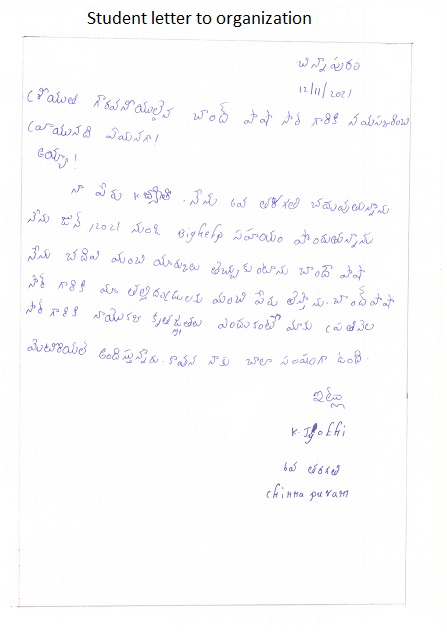 Student letter to organization
చిన్నాపురం
12/11/2021
శ్రీయుత గౌరవనీయులైన బాంద్ పాషా సార్ గారికి నమస్కరించి
వ్రాయునది ఏమనగా!
అయ్యా!
నా పేరు K.జ్యోతి. నేను 6వ తరగతి చదువుతున్నాను
నేను జున్ ,2021 నుండి Bighelp సహాయం పొందుతున్నాను
నేను చదివి మంచి మార్కులు తెచ్చుకుంటాను బాంద్ పాషా
సార్ గారికి మా తల్లిదండ్రులకు మంచి పేరు తెస్తాను. బాంద్ పాషా
సార్ గారికి నాయొక్క కృతజ్ఞతలు ఎందుకంటే మాకు ప్రతినెల
మెటిరియల్ అందిస్తున్నారు. కావున నాకు చాలా సంతోషంగా ఉంది.
ఇట్లు
K. Jyothi
6వ తరగతి
chinna puram